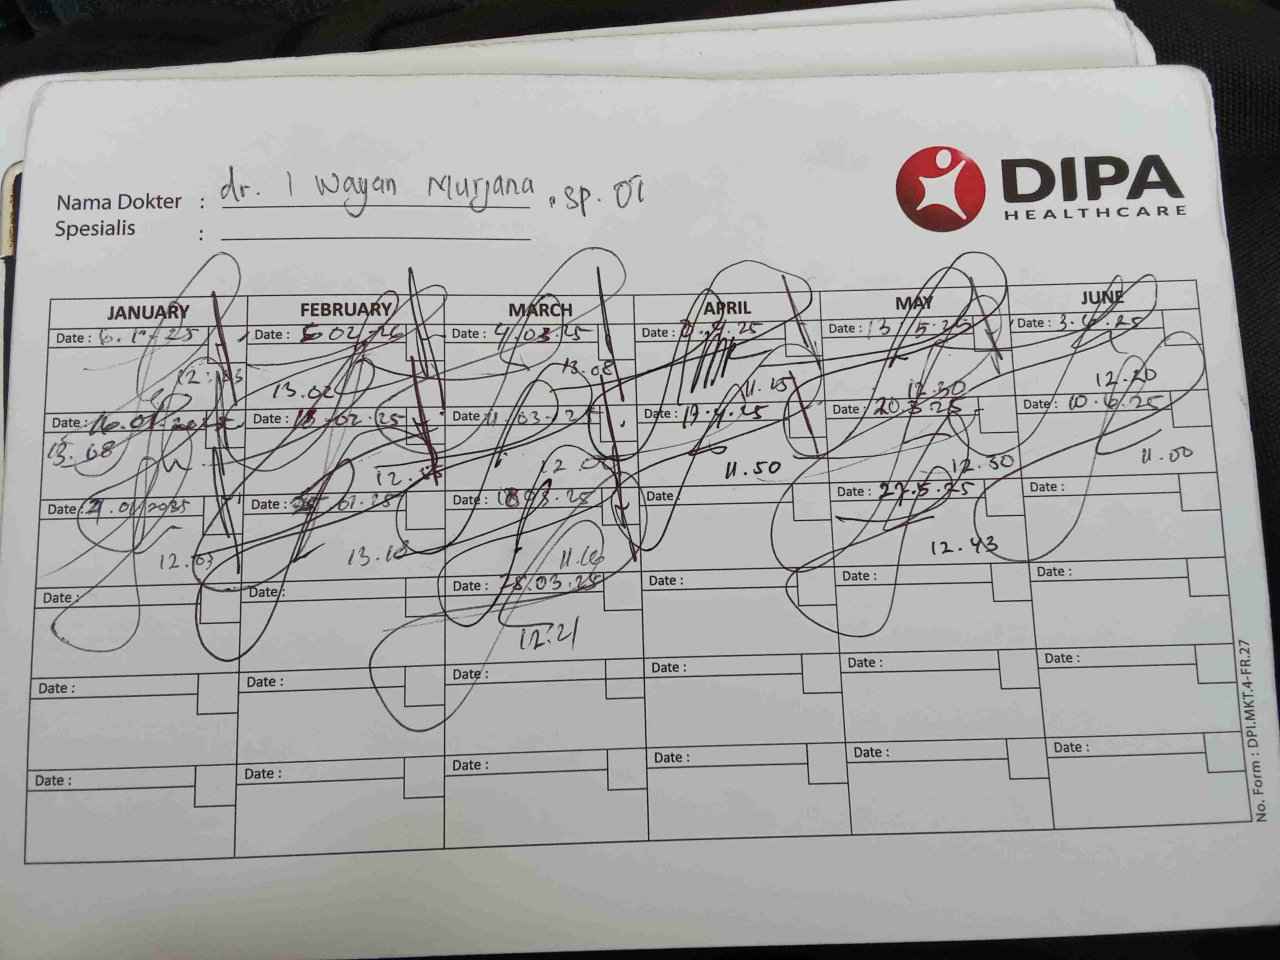 DIPA
HEALTHCARE
Nama Dokter : dr. I Wayan Murjana, Sp. OT
Spesialis :
JANUARY FEBRUARY MARCH APRIL MAY JUNE
Date : 6.1.25 Date : 02.25 Date : 4.03.25 Date : .4.25 Date : 13.5.25 Date : 3.6.25
13.02 13.08 11.15 12.30 12.20
Date : 16.01.2025 Date : 02.25 Date : 11.03.25 Date : 19.4.25 Date : 20.5.25 Date : 10.6.25
13.08 12. 11.50 12.30 11.00
Date : .01.2025 Date : Date : 18.03.25 Date : Date : 27.5.25 Date :
12.03 13.18 11.16 12.43
Date : Date : Date : 25.03.25 Date : Date : Date :
12.21
Date : Date : Date : Date : Date : Date :
Date : Date : Date : Date : Date : Date :
No. Form : DPI.MKT.4-FR.27